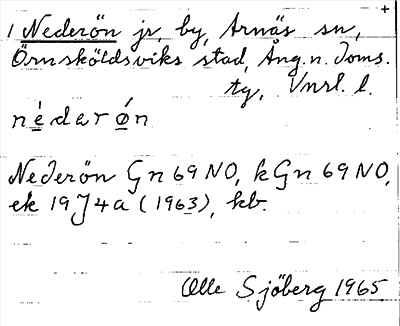 +
1 Nederön jr, by, Arnäs sn,
Örnsköldsviks stad, Ång. n. Doms.
tg, Vnrl. l.
nédarǿn
Nederön Gn 69 NO, kGn 69 NO,
ek 19J4a (1963), kb.
Olle Sjöberg 1965